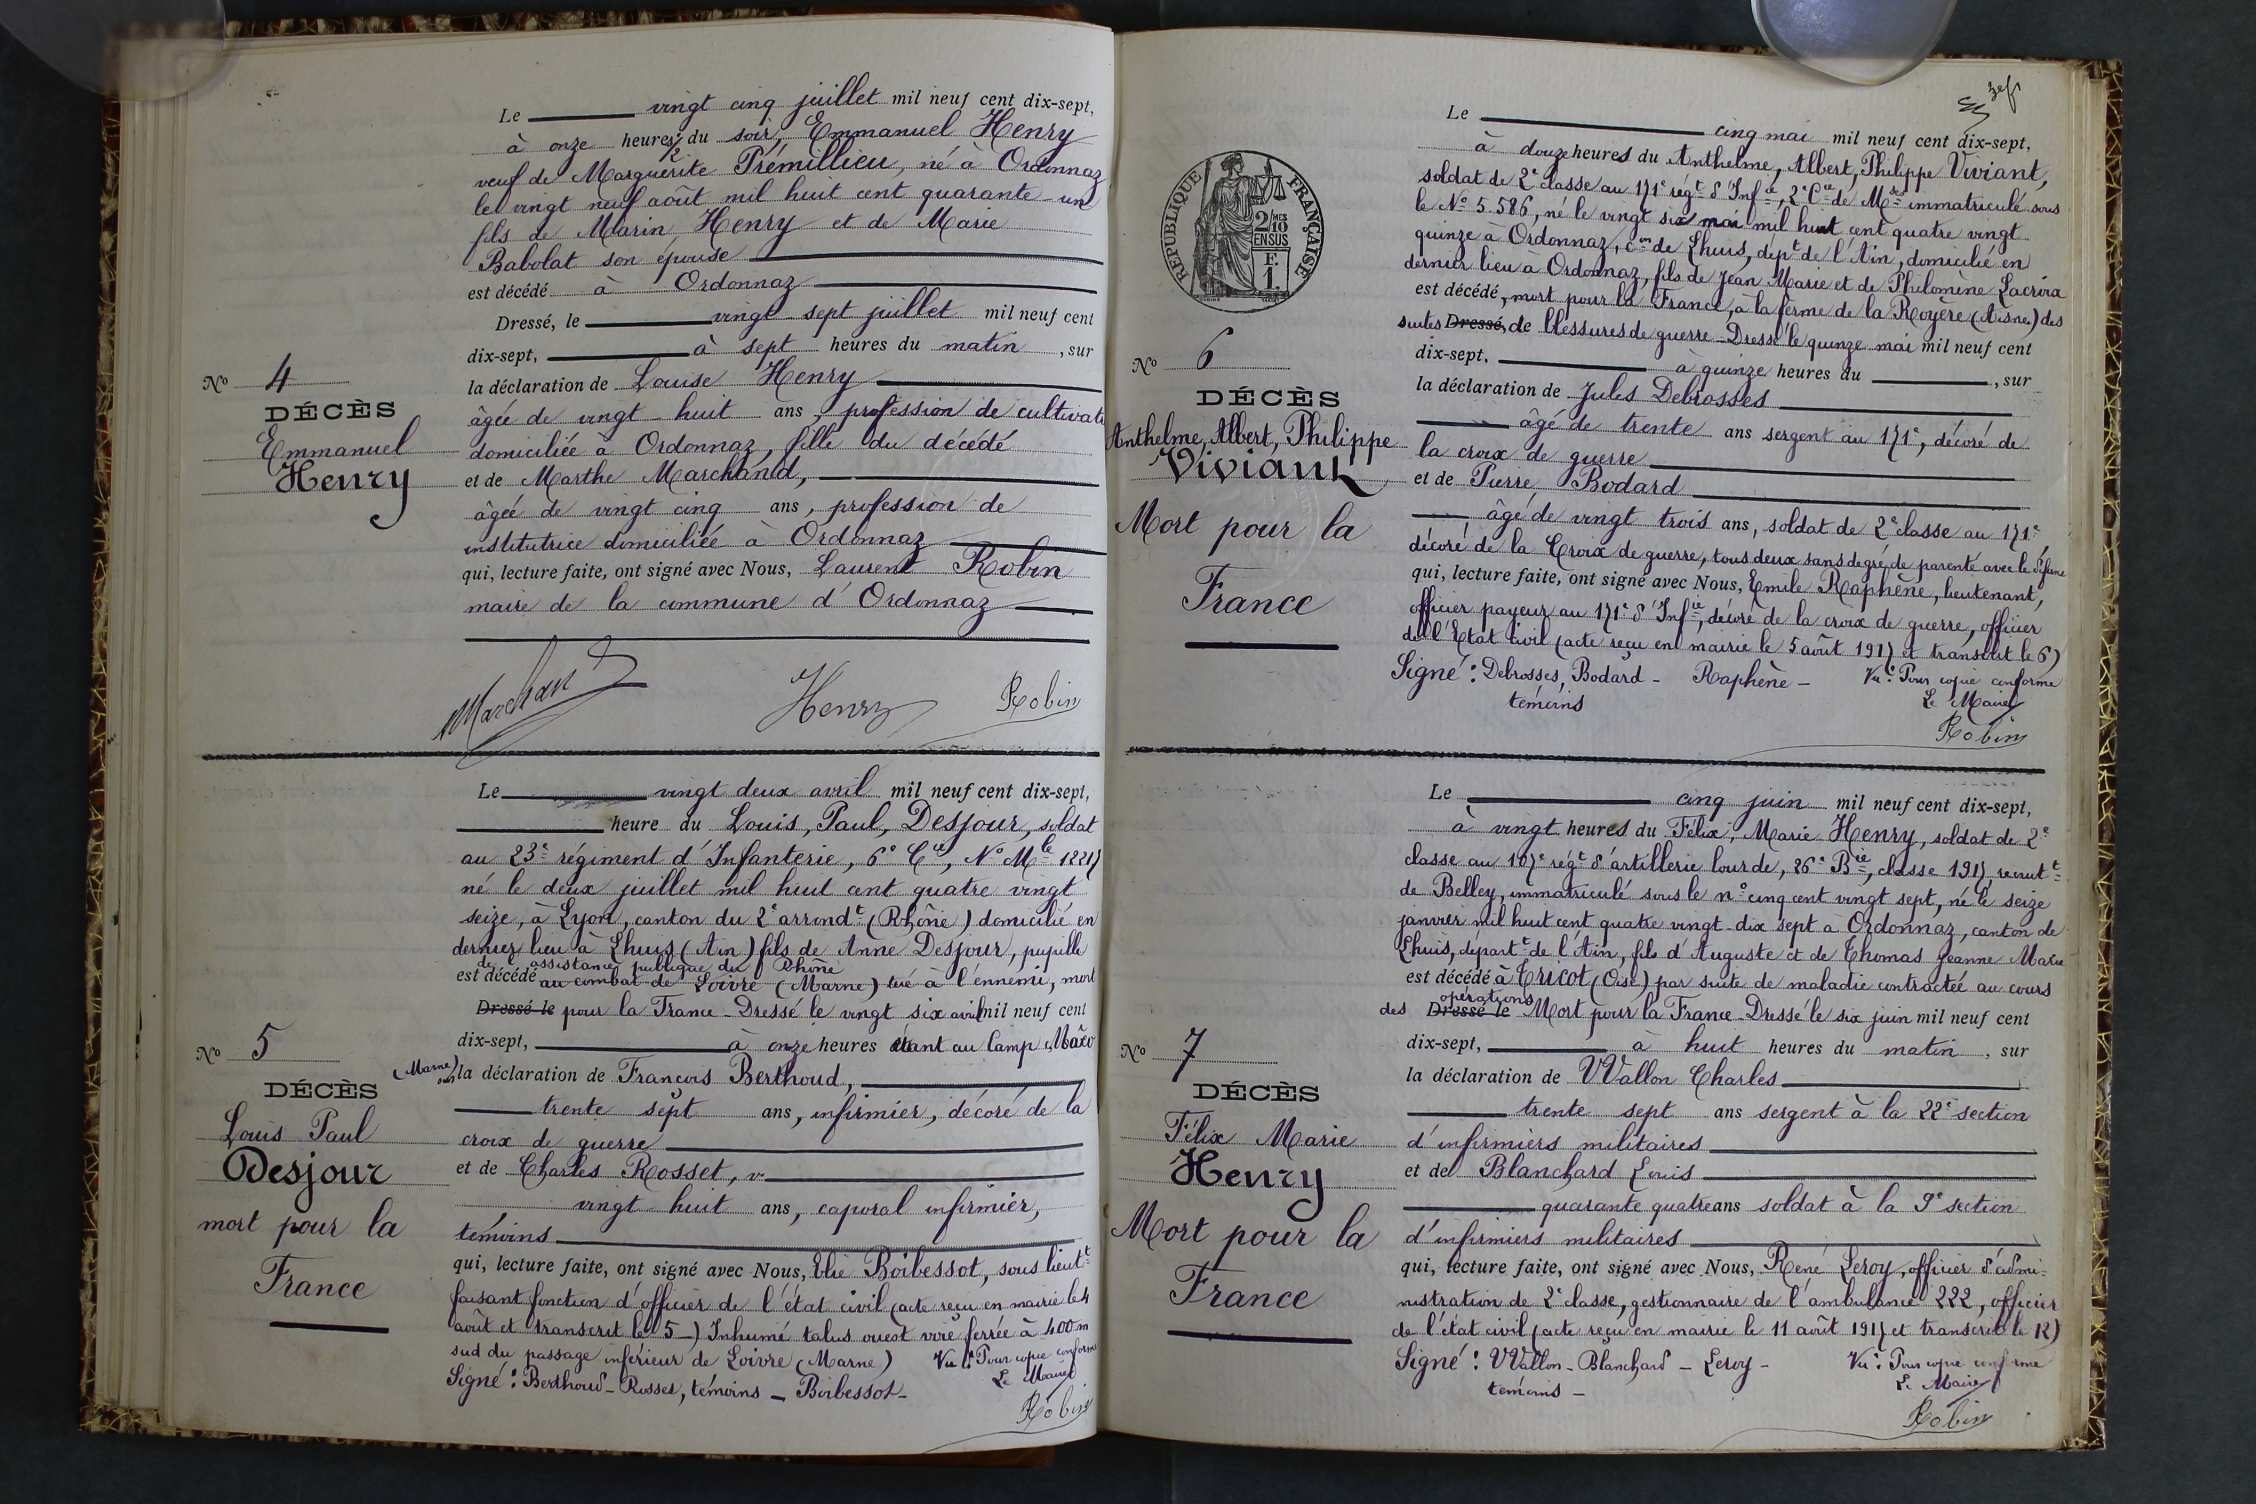 Le vingt cinq juillet mil neuf cent dix-sept,
à onze heures ½ du soir, Emmanuel Henry
veuf de Marguerite Prémillieu, né à Ordonnaz
le vingt neuf août mil huit cent quarante-un
fils de Marin Henry et de Marie
Babolat son épouse
est décédé à Ordonnaz
Dressé, le vingt sept juillet mil neuf cent
dix-sept, à sept heures du matin, sur
No 4
la déclaration de Louise Henry
DÉCÈS
âgée de vingt huit ans, profession de cultivat
Emmanuel
domiciliée à Ordonnaz, fille du décédé
Henry
et de Marthe Marchand,
âgée de vingt cinq ans, profession de
institutrice domiciliée à Ordonnaz
qui, lecture faite, ont signé avec Nous, Laurent Robin
maire de la commune d'Ordonnaz
Marchand Henry Robin
Le vingt deux avril mil neuf cent dix-sept,
heure du Louis, Paul, Desjour, soldat
au 23e régiment d'Infanterie, 6e Cie, No Mle 12217
né le deux juillet mil huit cent quatre vingt
seize, à Lyon, canton du 2e arrondt (Rhône) domicilié en
dernier lieu à Lhuis (Ain) fils de Anne Desjour, pupille
de assistance publique du Rhône
est décédé au combat de Loivre (Marne) tué à l'ennemi, mort
Dressé le pour la France - Dressé le vingt six avril mil neuf cent
dix-sept, à onze heures étant au Camp
No 5
(Marne) sur la déclaration de François Berthoud,
DÉCÈS
trente sept ans, infirmier, décoré de la
Louis Paul
croix de guerre
Desjour
et de Charles Rosset,
mort pour la
vingt huit ans, caporal infirmier,
témoins
France
qui, lecture faite, ont signé avec Nous, Elie Boibessot, sous lieutt
faisant fonction d'officier de l'état civil (acte reçu en mairie le 4
août et transcrit le 5-) Inhumé talus ouest voie ferrée à 400m
sud du passage inférieur de Loivre (Marne) Vu: Pour copie conforme
Signé: Berthoud - Rosset, témoins - Boibessot - Le Maire
Robin
Le cinq mai mil neuf cent dix-sept,
à douze heures du Anthelme, Albert, Philippe Viviant,
soldat de 2e classe au 171e régt d'Infie, 2e Cie de Mses immatriculé sous
le No 5.586, né le vingt six mai mil huit cent quatre vingt
quinze à Ordonnaz, con de Lhuis, dépt de l'Ain, domicilié en
dernier lieu à Ordonnaz, fils de Jean Marie et de Philomène Lacroix
est décédé, mort pour la France, à la ferme de la Royère (Aisne) des
suites Dressé, de blessures de guerre - Dressé le quinze mai mil neuf cent
RÉPUBLIQUE FRANÇAISE
2/10 MES
EN SUS
F.
1.
No 6
dix-sept, à quinze heures du , sur
DÉCÈS
la déclaration de Jules Debrosses
Anthelme, Albert, Philippe
âgé de trente ans sergent au 171e, décoré de
Viviant
la croix de guerre
et de Pierre Bodard
Mort pour la
âgé de vingt trois ans, soldat de 2e classe au 171e,
décoré de la Croix de guerre, tous deux sans degré de parenté avec le défunt
France
qui, lecture faite, ont signé avec Nous, Emile Raphène, lieutenant,
officier payeur au 171e d'Infie, décoré de la croix de guerre, officier
de l'Etat civil (acte reçu en mairie le 5 août 1917 et transcrit le 6)
Signé: Debrosses, Bodard - Raphène - Vu: Pour copie conforme
témoins Le Maire
Robin
Le cinq juin mil neuf cent dix-sept,
à vingt heures du Félix, Marie Henry, soldat de 2e
classe au 107e régt d'artillerie lourde, 26e Bie, classe 1917, recrutt
de Belley, immatriculé sous le no cinq cent vingt sept, né le seize
janvier mil huit cent quatre vingt-dix sept à Ordonnaz, canton de
Lhuis, départt de l'Ain, fils d'Auguste et de Thomas Jeanne Marie
est décédé à Tricot (Oise) par suite de maladie contractée au cours
des opérations Dressé le Mort pour la France - Dressé le six juin mil neuf cent
No 7
dix-sept, à huit heures du matin, sur
DÉCÈS
la déclaration de Wallon Charles
trente sept ans sergent à la 22e section
Félix Marie
d'infirmiers militaires
Henry
et de Blanchard Louis
quarante quatre ans soldat à la 9e section
Mort pour la
d'infirmiers militaires
France
qui, lecture faite, ont signé avec Nous, René Leroy, officier d'admi-
nistration de 2e classe, gestionnaire de l'ambulance 222, officier
de l'état civil (acte reçu en mairie le 11 août 1917 et transcrit le 12)
Signé: Wallon - Blanchard - Leroy - Vu: Pour copie conforme
témoins - Le Maire
Robin